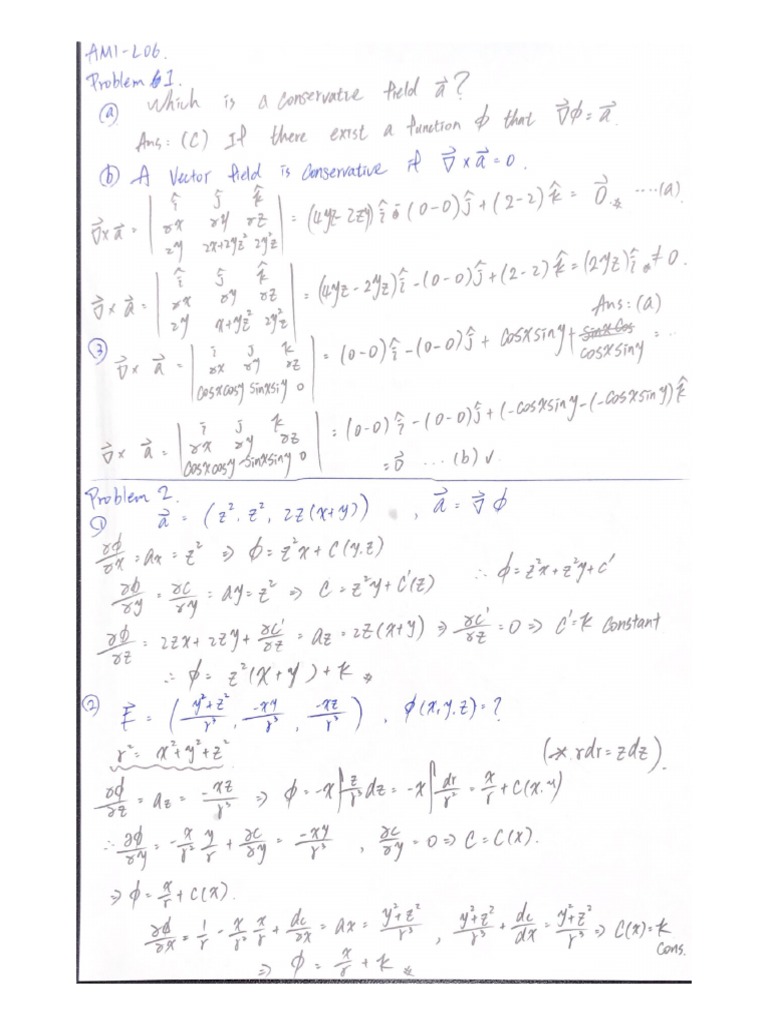 AM1-L06.
Problem 1.
(a) Which is a conservative field a⃗?
Ans: (C) If there exist a function ϕ that ∇⃗ϕ = a⃗.
(b) A Vector field is conservative if ∇⃗ × a⃗ = 0.
∇⃗×a⃗ = | î ĵ k̂ ; ∂x ∂y ∂z ; 2y 2x+2yz² 2y²z | = (4yz-2zy)î - (0-0)ĵ + (2-2)k̂ = 0⃗ ....(a)
∇⃗×a⃗ = | î ĵ k̂ ; ∂x ∂y ∂z ; 2y x+yz² 2y²z | = (4yz-2yz)î - (0-0)ĵ + (2-2)k̂ = (2yz)î ≠ 0.
Ans: (a)
③ ∇⃗× a⃗ = | i j k ; ∂x ∂y ∂z ; cosxcosy sinxsiy 0 | = (0-0)î - (0-0)ĵ + cosxsiny + cosxsiny = ..
∇⃗× a⃗ = | i j k ; ∂x ∂y ∂z ; cosxcosy -sinxsiny 0 | = (0-0)î - (0-0)ĵ + (-cosxsiny-(-cosxsiny)k̂
= 0⃗ ... (b) √
Problem 2.
① a⃗ = (z², z², 2z(x+y)) , a⃗ = ∇⃗ϕ
∂ϕ/∂x = ax = z² ⇒ ϕ = z²x + C(y,z)
∂ϕ/∂y = ∂c/∂y = ay = z² ⇒ C = z²y + C'(z) ∴ ϕ = z²x+z²y+c'
∂ϕ/∂z = 2zx + 2zy + ∂c'/∂z = az = 2z(x+y) ⇒ ∂c'/∂z = 0 ⇒ C' = k constant
∴ ϕ = z²(x+y)+k
② E⃗ = ( (y²+z²)/r³, -xy/r³, -xz/r³ ) , ϕ(x,y,z) = ?
r² = x²+y²+z² (* rdr = zdz)
∂ϕ/∂z = az = -xz/r³ ⇒ ϕ = -x∫z/r³ dz = -x∫dr/r² = x/r + C(x,y)
∴ ∂ϕ/∂y = -x/r² y/r + ∂c/∂y = -xy/r³ , ∂c/∂y = 0 ⇒ C = C(x).
⇒ ϕ = x/r + C(x).
∂ϕ/∂x = 1/r - x/r² x/r + dc/∂x = ax = (y²+z²)/r³ , (y²+z²)/r³ + dc/dx = (y²+z²)/r³ ⇒ C(x) = k
cons.
⇒ ϕ = x/r + k